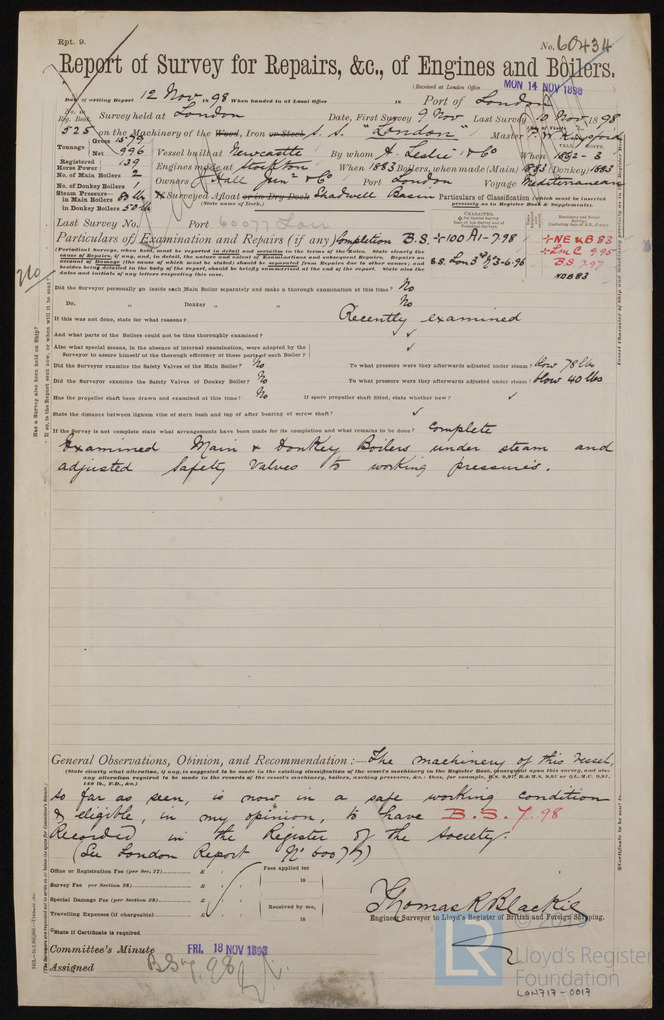 Rpt. 9.
No. 60434
Report of Survey for Repairs, &c., of Engines and Boilers.
(Received at London Office MON 14 NOV 1898
Date of writing Report 12 Nov 1898 When handed in at Local Office 18 Port of London
No. in Reg. Book. Survey held at London Date, First Survey 9 Nov Last Survey 10 Nov 1898
525 on the Machinery of the Wood, Iron or Steel, S. S. "London" Master
Tonnage Gross 1579
Net 996 Vessel built at Newcastle By whom A. Leslie & Co When 1882-3
Registered Horse Power 139 Engines made at Stockton When 1883 Boilers, when made (Main) 1883 (Donkey) 1883
No. of Main Boilers 2
No. of Donkey Boilers 1 Owners J Hall Junr & Co Port London Voyage Mediterranean
Steam Pressure— in Main Boilers 80 lb
in Donkey Boilers 50 lb Surveyed Afloat or in Dry Dock Shadwell Basin
(State name of Dock.)
Particulars of Classification (which must be inserted precisely as in Register Book & Supplements.
Last Survey No. Port 60077 Lon
Particulars of Examination and Repairs (if any) Completion B.S. +100 A1-7.98 + NE & B 83
+ LMC 9.95
S.S. Lon 3rd No 3-6-96 B S 7.97
NDB83
(Periodical Surveys, when held, must be reported in detail and seriatim in the terms of the Rules. State clearly the
cause of Repairs, if any, and, in detail, the nature and extent of Examinations and subsequent Repairs. Repairs on
account of Damage (the cause of which must be stated) should be separated from Repairs due to other causes; and
besides being detailed in the body of the report, should be briefly summarized at the end of the report. State also the
dates and initials of any letters respecting this case.
Did the Surveyor personally go inside each Main Boiler separately and make a thorough examination at this time? No
Do. Donkey " " No
If this was not done, state for what reasons? Recently examined
And what parts of the Boilers could not be thus thoroughly examined?
Also what special means, in the absence of internal examination, were adopted by the
Surveyor to assure himself of the thorough efficiency of those parts of each Boiler?
Did the Surveyor examine the Safety Valves of the Main Boiler? No To what pressure were they afterwards adjusted under steam? blow 78 lbs
Did the Surveyor examine the Safety Valves of Donkey Boiler? No To what pressure were they afterwards adjusted under steam? blow 40 lbs
Has the propeller shaft been drawn and examined at this time? No If spare propeller shaft fitted, state whether new?
State the distance between lignum vitæ of stern bush and top of after bearing of screw shaft?
If the Survey is not complete state what arrangements have been made for its completion and what remains to be done? Complete
Examined Main & Donkey Boilers under steam and
adjusted Safety Valves to working pressures.
General Observations, Opinion, and Recommendation:— The machinery of this vessel,
(State clearly what alteration, if any, is suggested to be made in the existing classification of the vessel's machinery in the Register Book, consequent upon this survey, and also
any alteration required to be made in the records of the vessel's machinery, boilers, working pressures, &c.: thus, for example, B.S. 9,97, B.&M.S. 9,97 or + L.M.C. 9,97,
140 lb., F.D., &c.)
so far as seen, is now in a safe working condition
& eligible, in my opinion, to have B. S. 7. 98
Recorded in the Register of the Society.
(See London Report No 60077)
Office or Registration Fee (per Sec. 27) £ Fees applied for
Survey Fee per Section 28) £ 18
Special Damage Fee (per Section 28) £ Received by me,
Travelling Expenses (if chargeable) £ 18
*State if Certificate is required
Thomas R Blackie
Engineer Surveyor to Lloyd's Register of British and Foreign Shipping.
Committee's Minute FRI. 18 NOV 1898
Assigned B S 7, 98
LR
Lloyd's Register
Foundation
LON717-0017